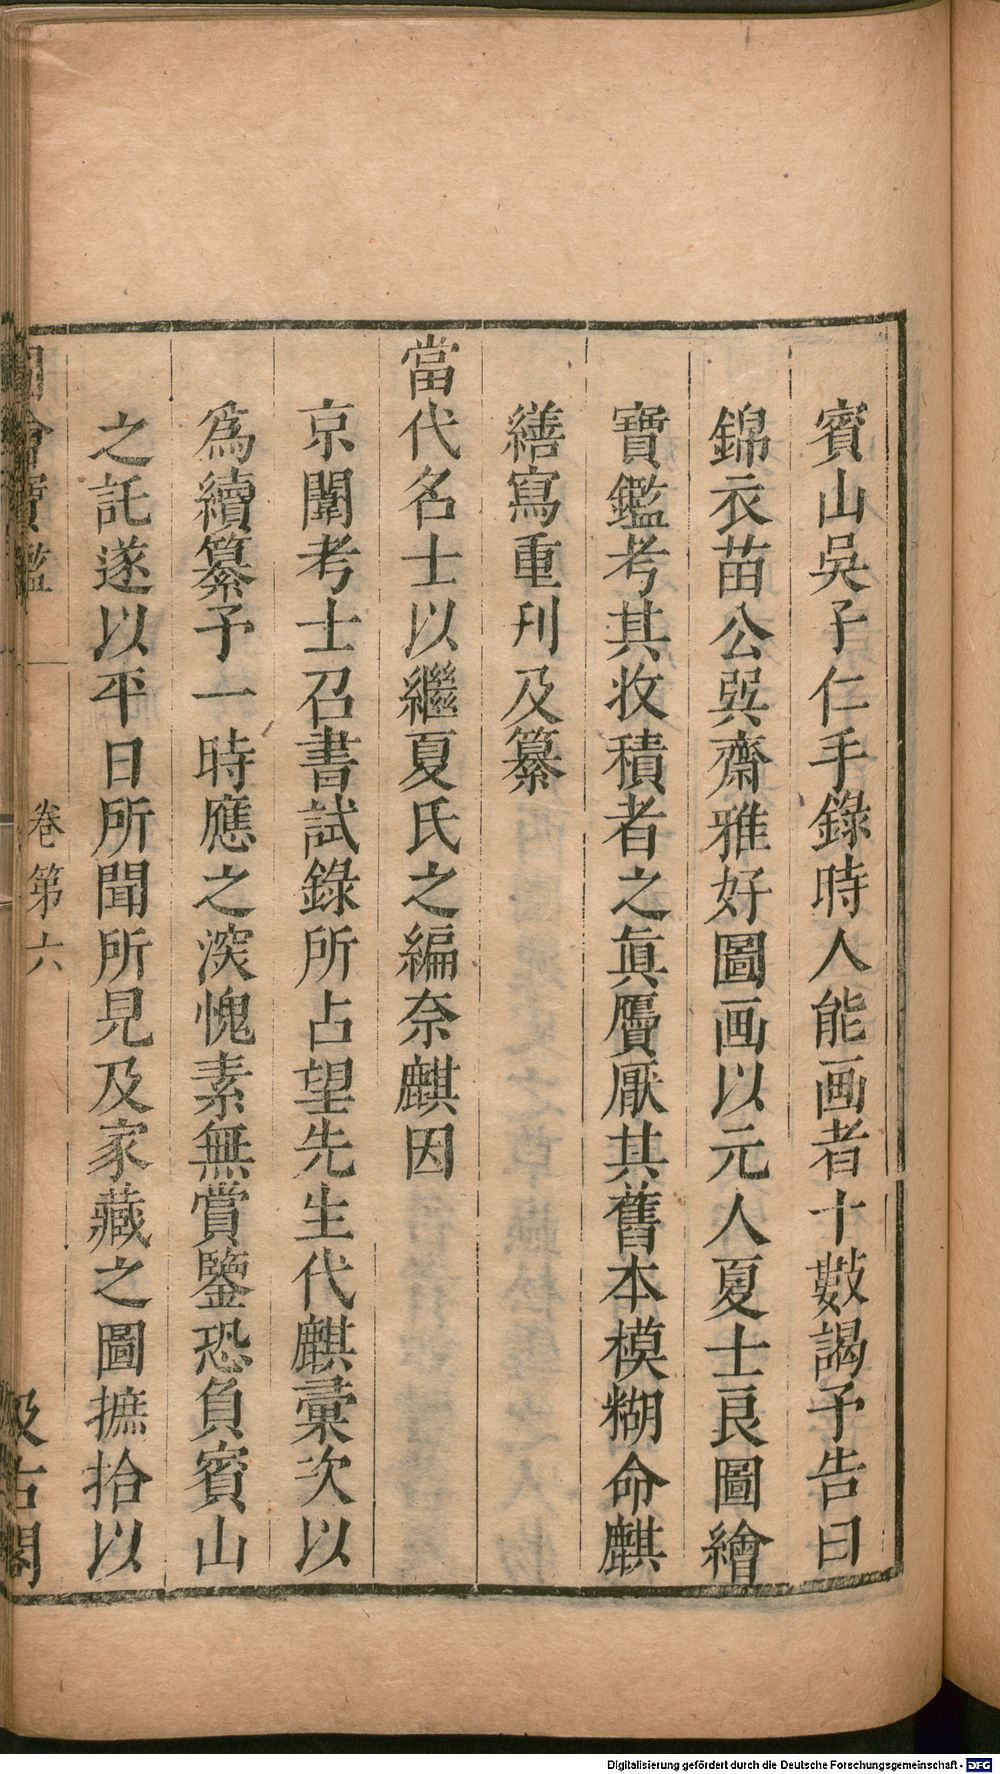 賓山吳子仁手錄時人能画者十數謁予告曰
錦衣苗公㢲齋雅好圖画以元人夏士良圖繪
寶鑑考其收積者之眞贗厭其舊本模糊命麒
繕寫重刊及纂
當代名士以繼夏氏之編奈麒因
京闈考士召書試錄所占望先生代麒彙次以
爲續纂予一時應之深愧素無賞鑒恐負賓山
之託遂以平日所聞所見及家藏之圖摭拾以
圖繪寶鑑 卷第六 汲古閣
Digitalisierung gefördert durch die Deutsche Forschungsgemeinschaft - DFG